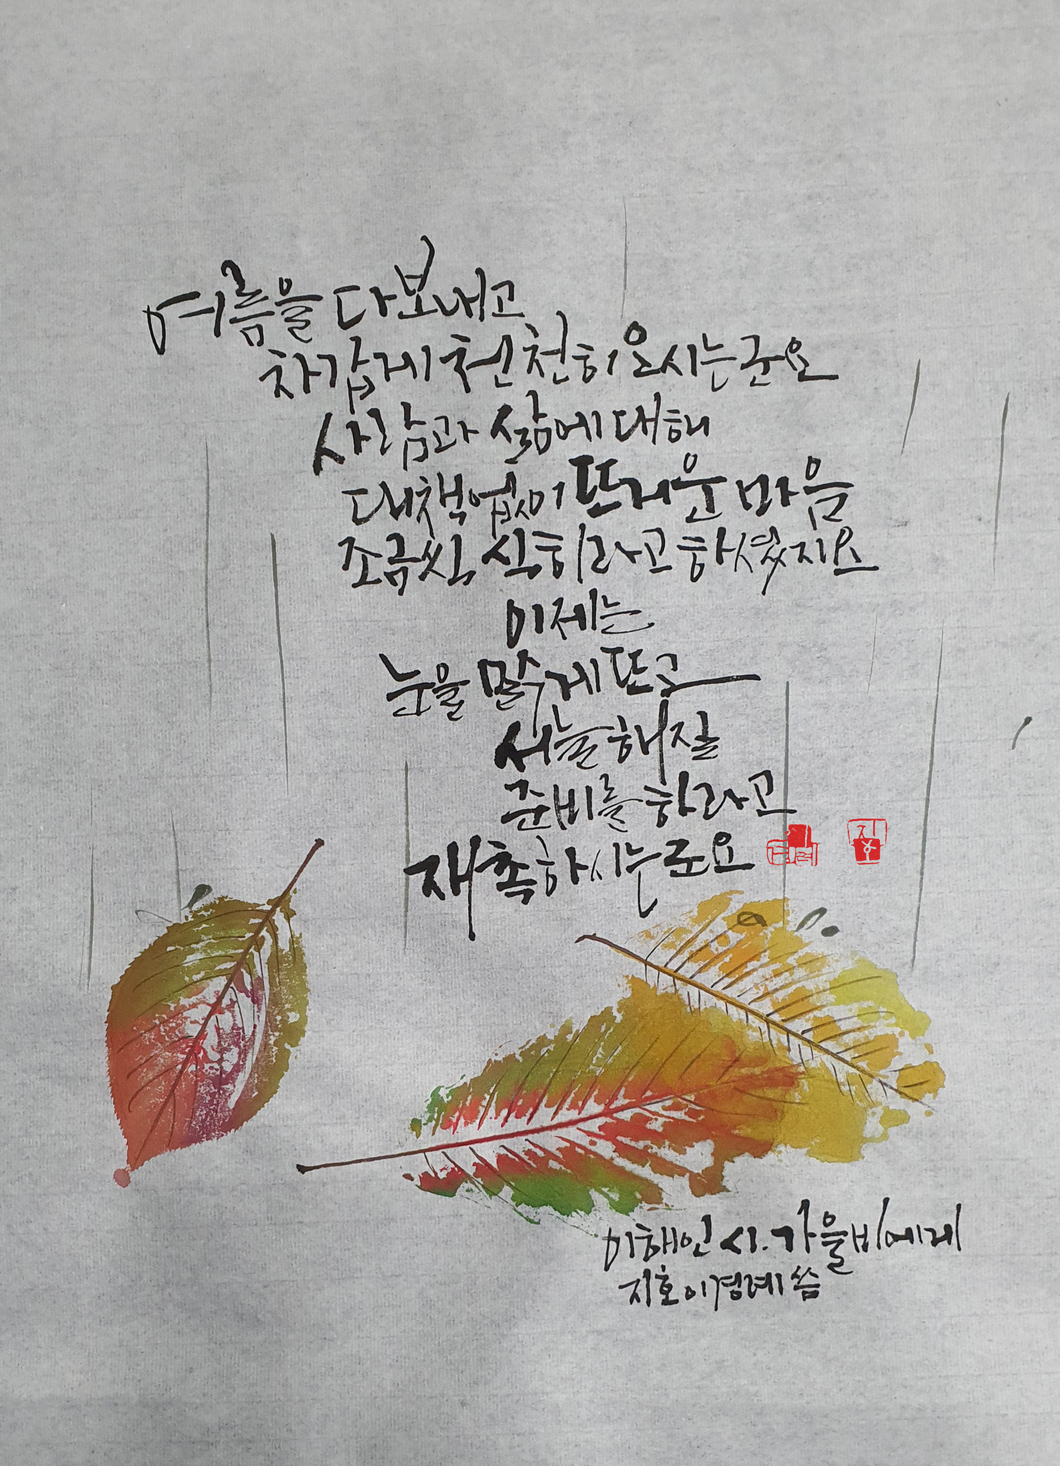 여름을 다 보내고
차갑게 천천히 오시는군요
사람과 삶에 대해
대책없이 뜨거운 마음
조금씩 식히라고 하셨지요
이제는
눈을 맑게 뜨고
서늘해질
준비를 하라고
재촉하시는군요
지호
이해인 시. 가을비에게
지호 이경례 씀